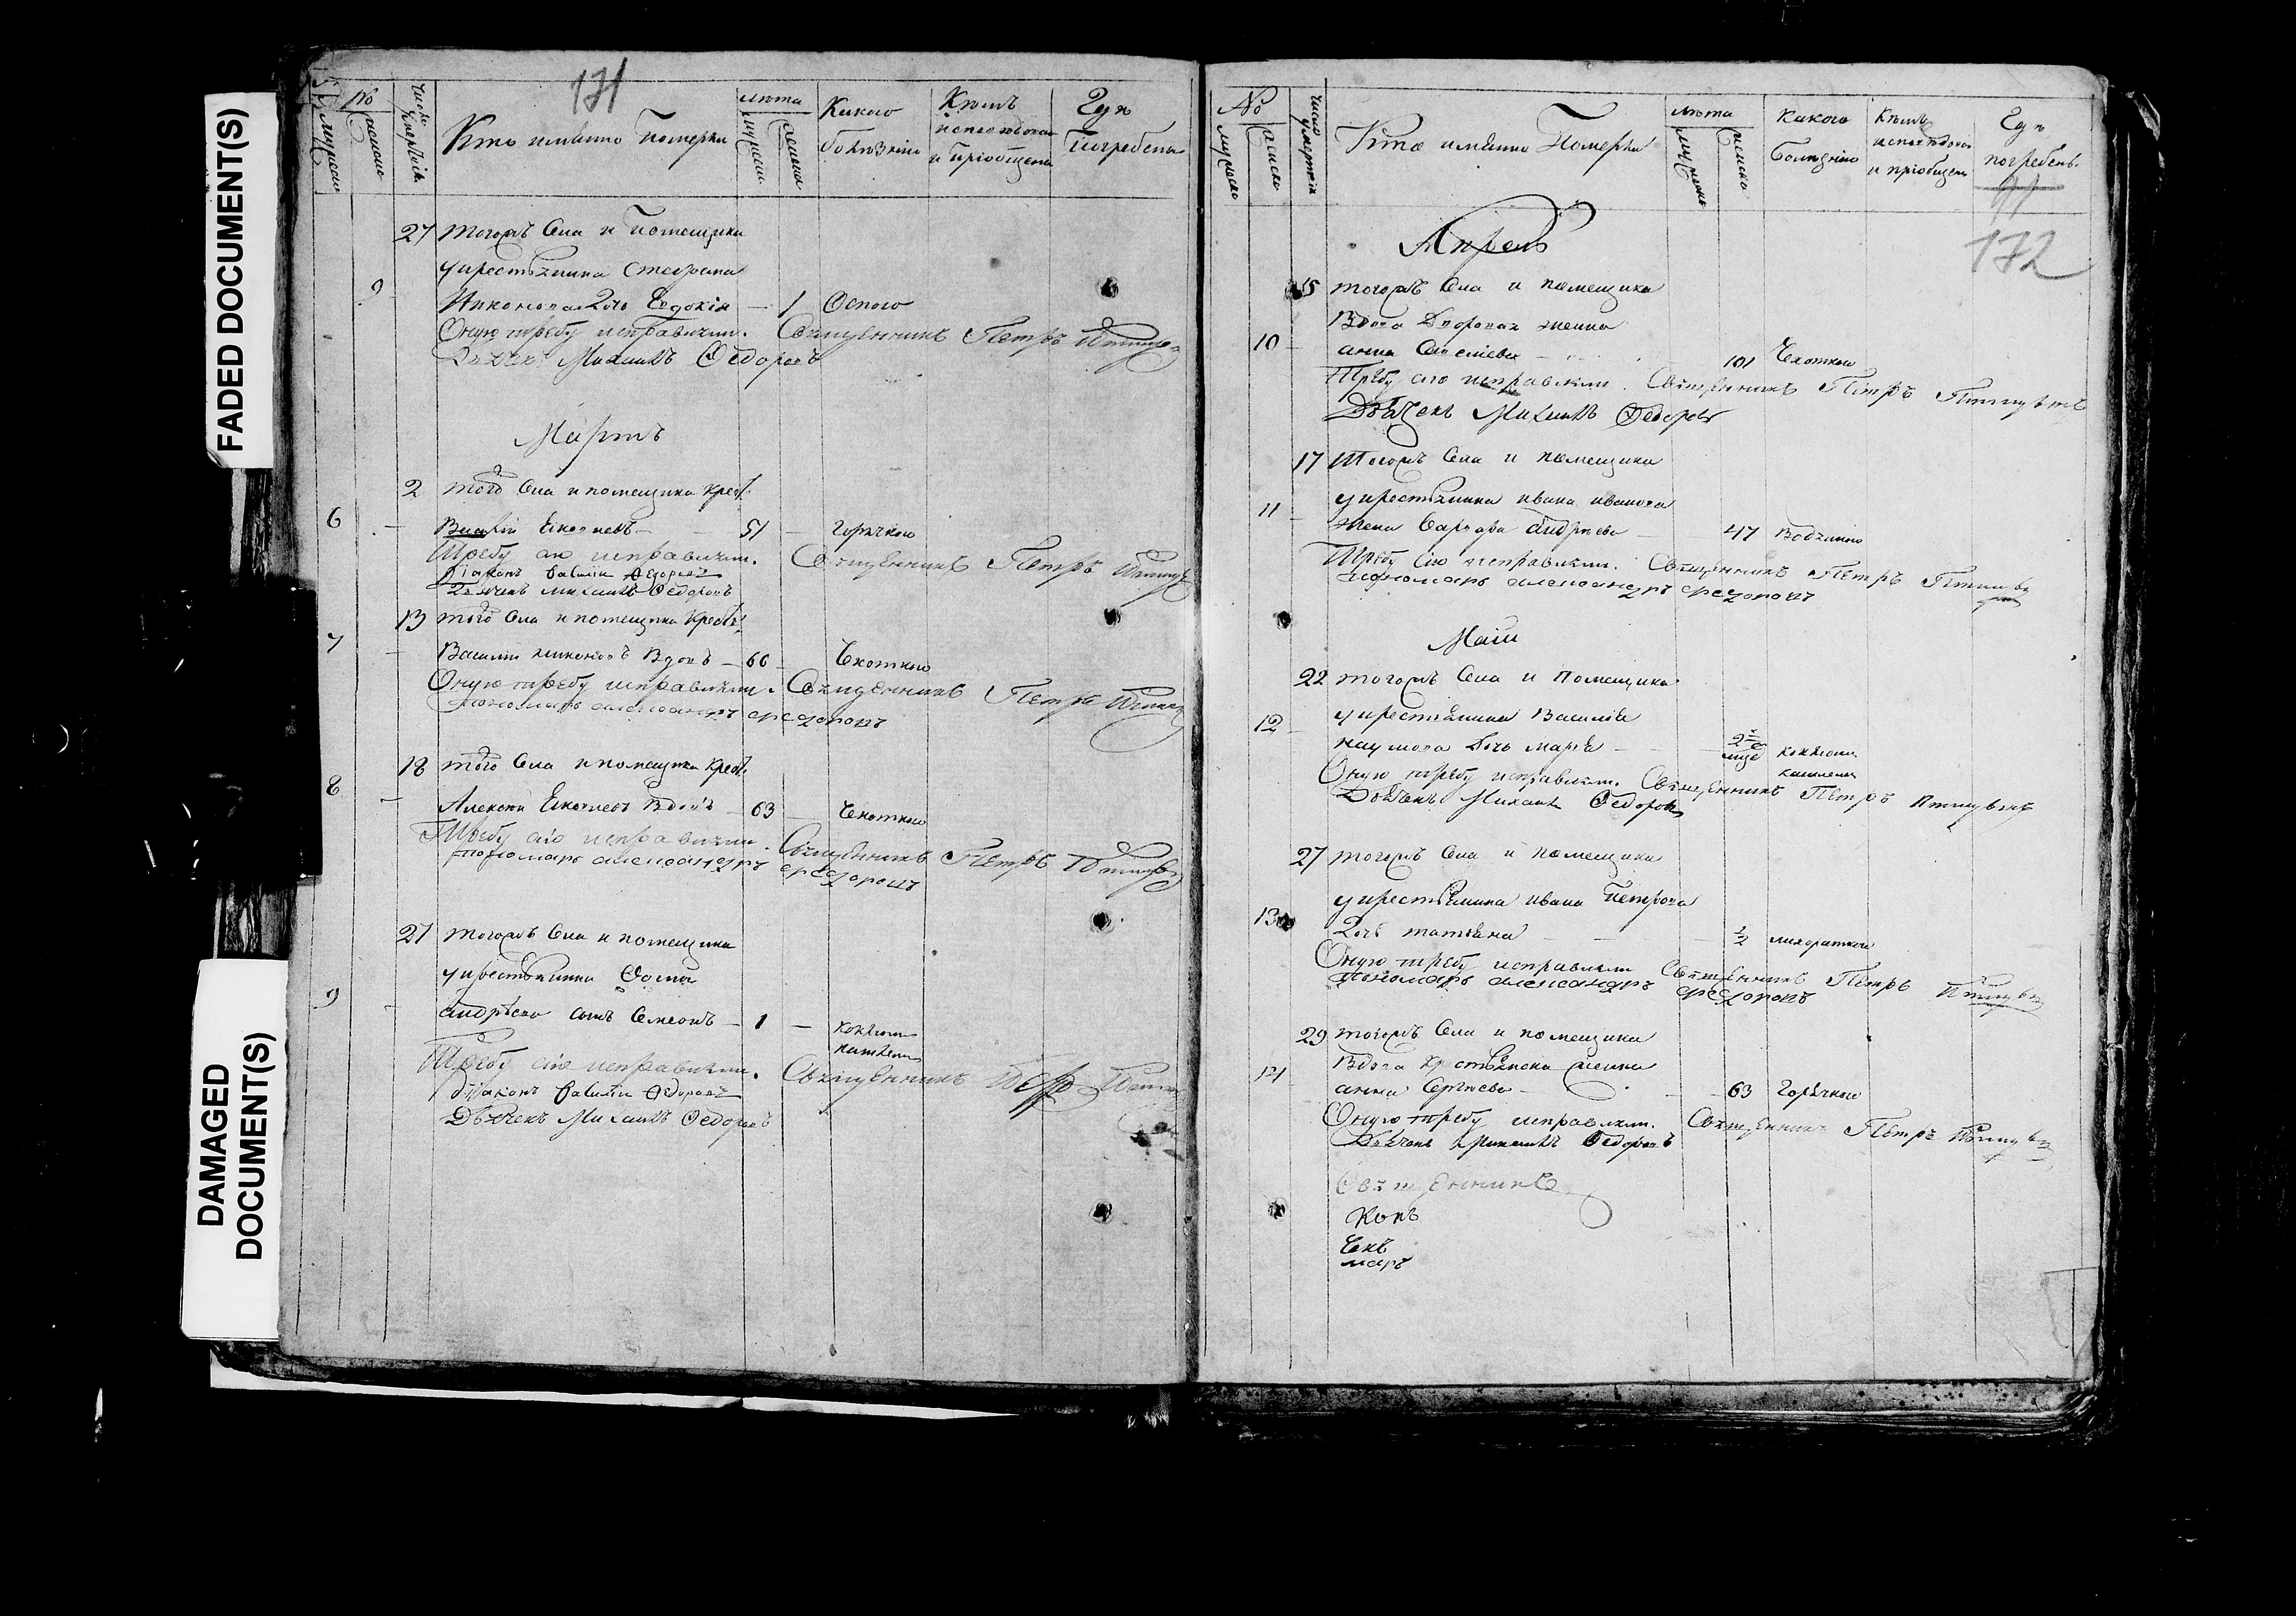 FADED DOCUMENT(S)
DAMAGED
DOCUMENT(S)
171
№
мужеска
женска
Число
Кто имянно Померъ
лѣта
Какого
болѣзнiю
Кѣмъ
исповѣдованъ
и прiобщенъ
Гдѣ
Погребенъ
27 тогожъ Села и помещика
у крестьянина Стефана
9 Никонова дочь Евдокiя — 1 Оспою
Оную требу исправляли. Священникъ Петръ
Дьячекъ Михаилъ Ѳедоровъ
Мартъ
2 того Села и помещика крест.
6 51 горячкою
Требу сiю исправляли. Священникъ Петръ
Дiаконъ Ѳедоровъ
Дьячекъ Михаилъ Ѳедоровъ
13 того Села и помещика крест.
7 Василiй Никоновъ Вдовъ — 66 Чехоткою
Оную требу исправляли. Священникъ Петръ
пономарь александръ федоровъ
18 того Села и помещика крест.
8 Алексѣй Вдовъ — 63 Чехоткою
Требу сiю исправляли. Священникъ Петръ
пономарь александръ федоровъ
27 тогожъ Села и помещика
у крестьянина Фомы
9 андрѣева сынъ Семеонъ — 1
Требу сiю исправляли. Священникъ Петръ
дiаконъ Ѳедоровъ
Дьячекъ Михаилъ Ѳедоровъ
№
мужеска
женска
число умертвiя
Кто имянно Померъ
лѣта
Какого
болезнiю
Кѣмъ
исповѣдованъ
и прiобщенъ
Гдѣ
погребенъ
172
Апрель
15 тогожъ Села и помещика
Вдова Дворовая женка
10 анна 101 Чехоткою
Требу сiю исправляли. Священникъ Петръ
Дьячекъ Михаилъ Ѳедоровъ
17 Тогожъ Села и помещика
у крестьянина ивана иванова
11 жена варвара андрѣева 47 Водяною
Требу сiю исправляли. Священникъ Петръ
пономарь александръ федоровъ
Маiи
22 тогожъ Села и Помещика
у крестьянина Василья
12 наумова дочь марья
Оную требу исправляли. Священникъ Петръ
Дьячекъ Михаилъ Ѳедоровъ
27 тогожъ Села и помещика
у крестьянина ивана Петрова
13 дочь татьяна ½ лихораткою
Оную требу исправляли Священникъ Петръ
пономарь александръ федоровъ
29 тогожъ Села и помещика
Вдова крестьянска женка
14 анна Сергѣева 63 Горячкою
Оную требу исправляли. Священникъ Петръ
Дьячекъ Михаилъ Ѳедоровъ
Священникъ
Конъ
Чекъ
марь